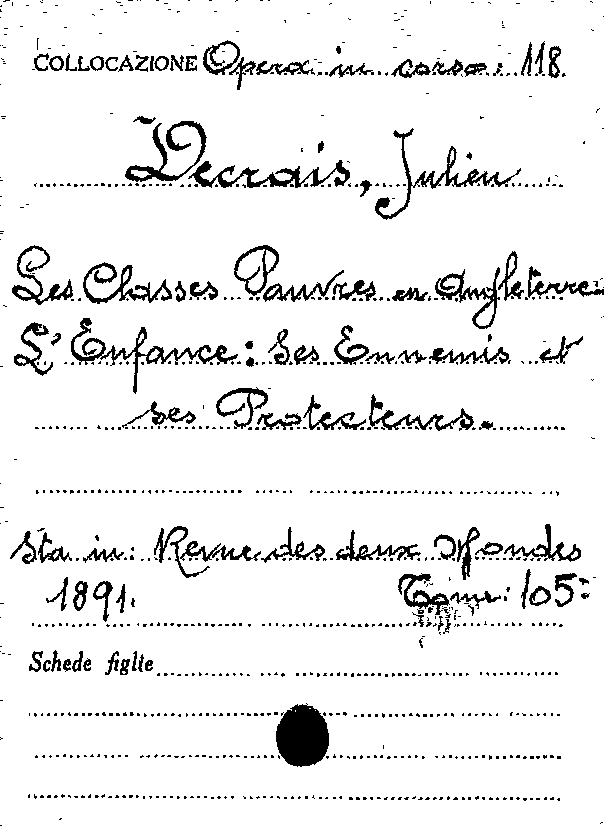 COLLOCAZIONE Opera in corso: 118.
Decrais, Julien
Les Classes Pauvres en Angleterre
L'Enfance: Ses Ennemis et
ses Protecteurs.
Sta in: Revue des deux Mondes
1891. Tome: 105:
Schede figlie